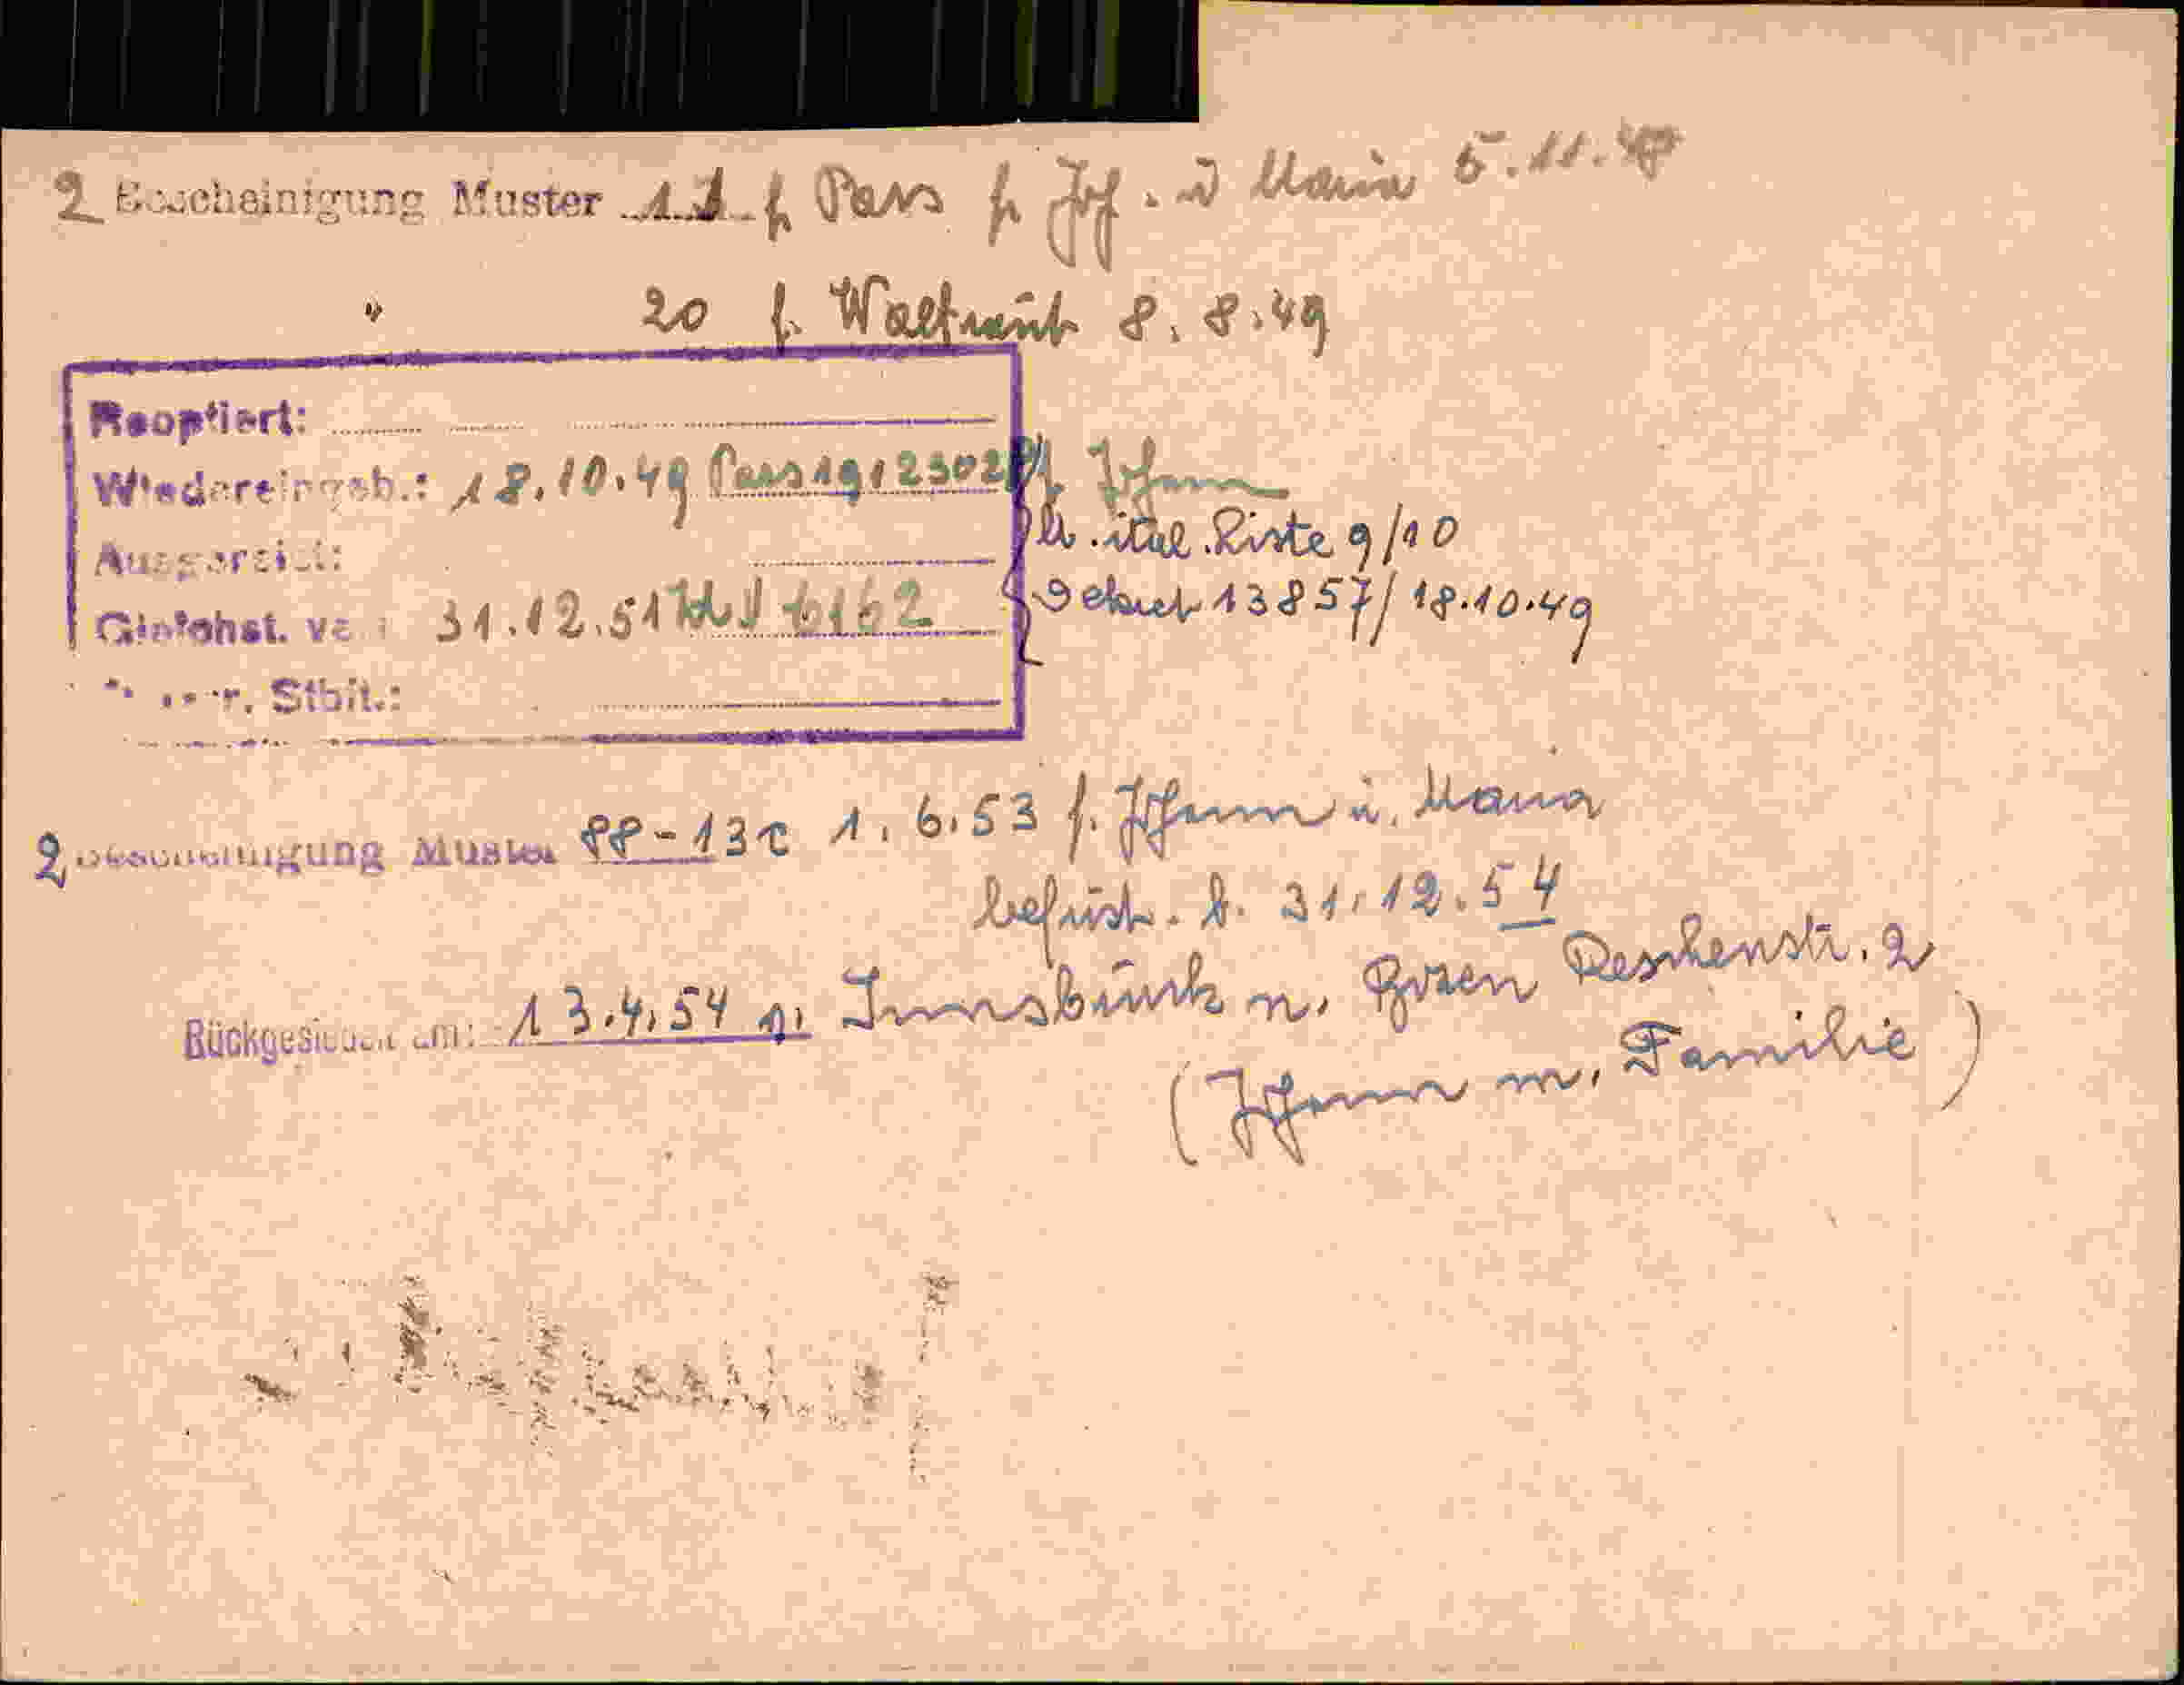 2 Bescheinigung Muster 11 f. Pass f. Joh. u Maria 5.11.48
" 20 f. Waltraut 8.8.49
Reoptiert:
Wiedereingeb.: 18.10.49 Pass 1912302 f. Johann
lt. ital. Liste 9/10
Ausgereist:
Dekret 13857/18.10.49
Gleichst. v 31.12.51
r. Stbit.:
2 Bescheinigung Muster PP-13c 1.6.53 f. Johann u. Maria
befrist. b. 31.12.54
Rückgesiedelt am: 13.4.54 v. Innsbruck n. Bozen Reschenstr. 2
(Johann m. Familie)